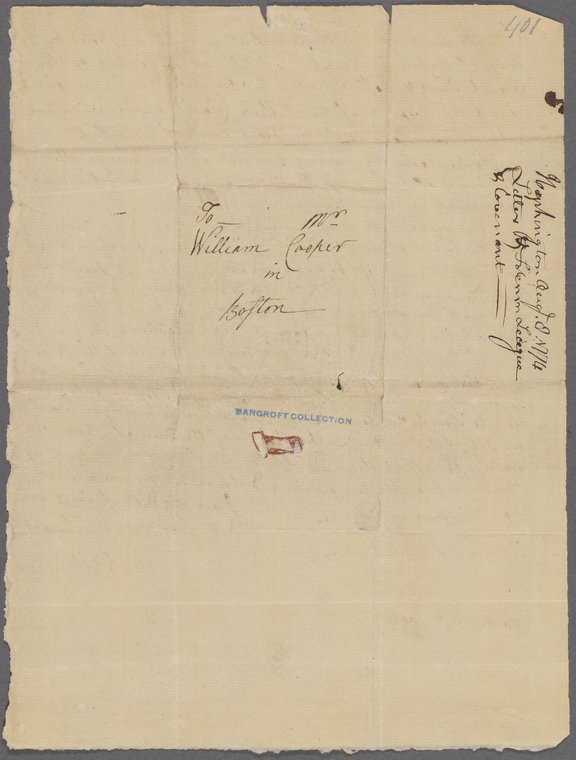 401
To Mr
William Cooper
in
Boston
BANGROFT COLLECTION
Washington Augt. 8. 1774
Letter Solemn League
& Covenant